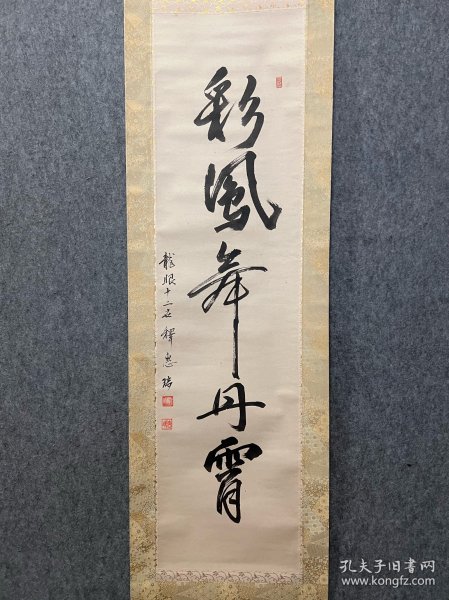 彩鳳舞丹霄
龍眼十二世 釋惠瑞
孔夫子旧书网
www.kongfz.com